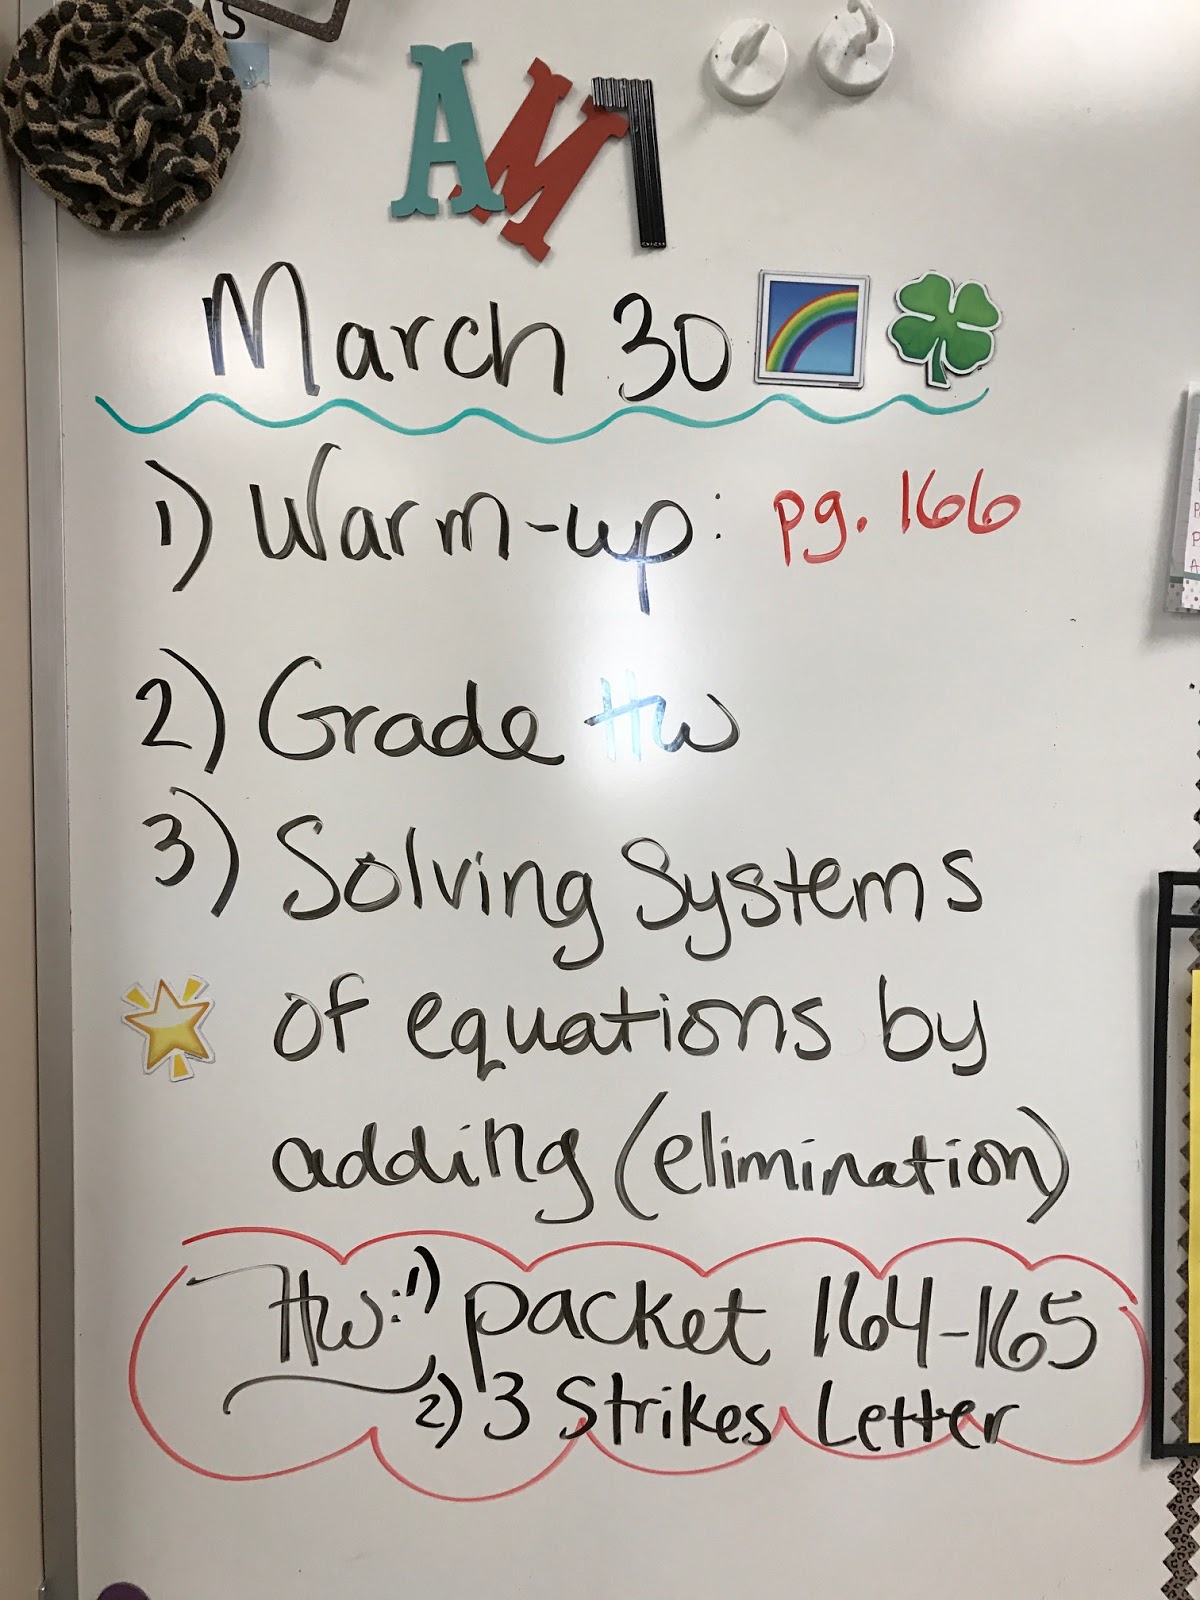 AM7
March 30
1) Warm-up: pg. 166
2) Grade Hw
3) Solving Systems
of equations by
adding (elimination)
Hw: 1) packet 164-165
2) 3 Strikes Letter